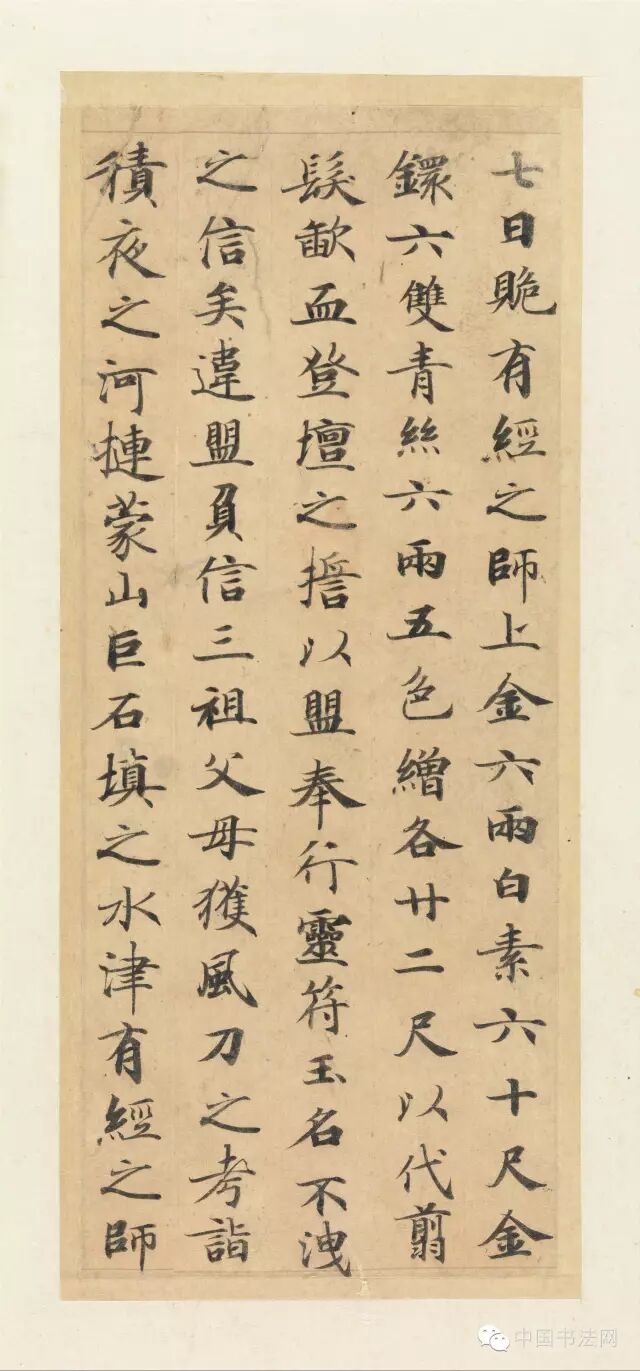 七日貱有經之師上金六兩白素六十尺金
鐶六雙青絲六兩五色繒各廿二尺以代翦
髮歃血登壇之誓以盟奉行靈符玉名不洩
之信矣違盟負信三祖父母獲風刀之考詣
積夜之河摙蒙山巨石填之水津有經之師
中国书法网